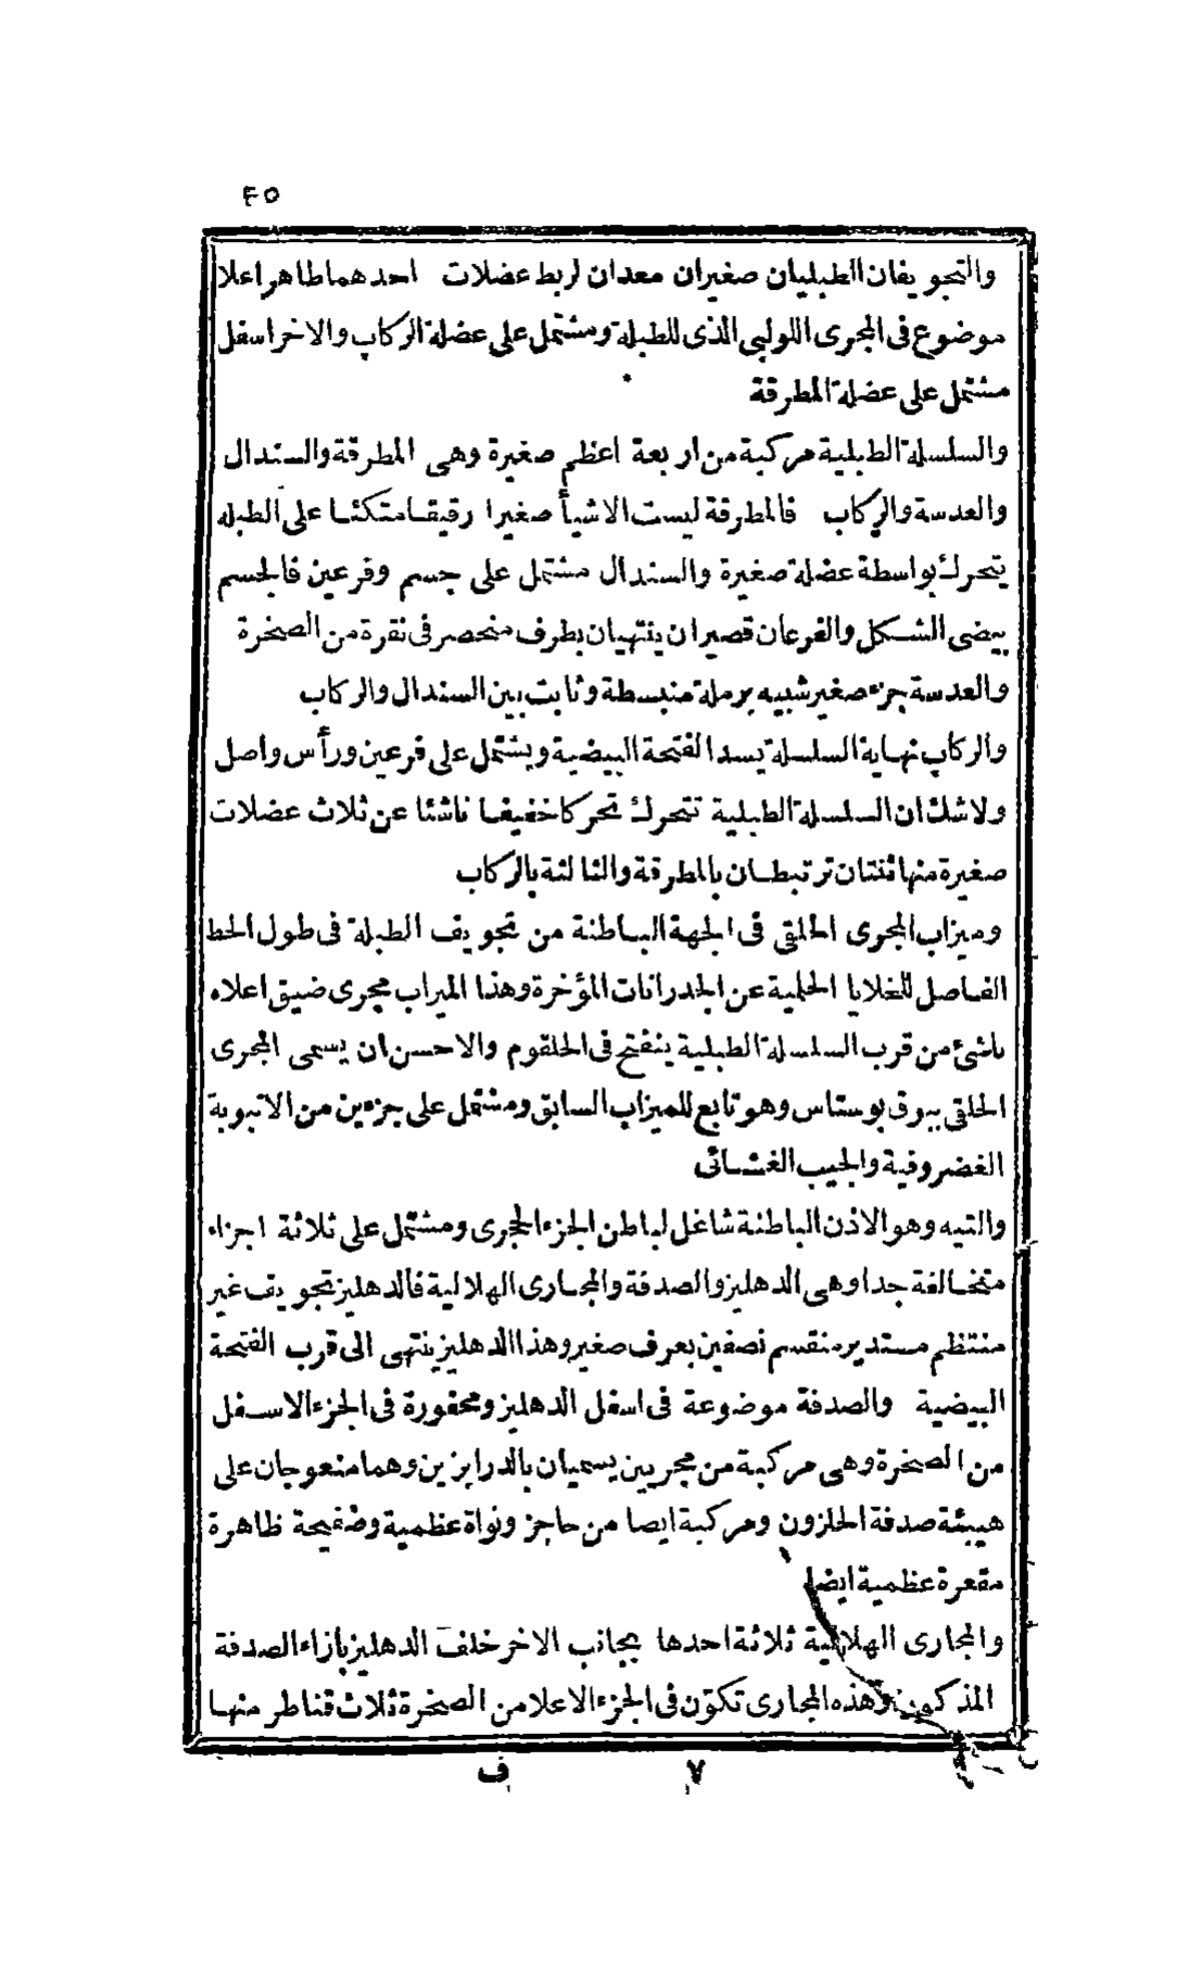 ٢٥
والتجويفان الطبليان صغيران معدان لربط عضلات احدهما طاهر اعلا
موضوع فى المجرى اللولبى الذى للطبلة ومشتمل على عضلة الركاب والاخر اسفل
مشتمل على عضلة المطرقة
والسلسلة الطبلية مركبة من اربعة اعظم صغيرة وهى المطرقة والسندال
والعدسة والركاب فالمطرقة ليست الاشيأ صغيرا رقيقا متكئا على الطبله
يتحرك بواسطة عضلة صغيرة والسندال مشتمل على جسم وفرعين فالجسم
بيضى الشكل والفرعان قصيران ينتهيان بطرف منحصر فى نقرة من الصخرة
والعدسة جزء صغير شبيه برملة منبسطة وثابت بين السندال والركاب
والركاب نهاية السلسلة يسد الفتحة البيضية ويشتمل على فرعين ورأس واصل
ولاشك ان السلسلة الطبلية تتحرك تحركا خفيفا ناشئا عن ثلاث عضلات
صغيرة منها ثنتان ترتبطان بالمطرقة والثالثة بالركاب
وميزاب المجرى الحلقى فى الجهة الباطنة من تجويف الطبلة فى طول الخط
الفاصل للخلايا الحلمية عن الجدرانات المؤخرة وهذا الميزاب مجرى ضيق اعلاه
ناشئ من قرب السلسلة الطبلية ينفتح فى الحلقوم والاحسن ان يسمى المجرى
الحلقى ببوق بوستاس وهو تابع للميزاب السابق ومشتمل على جزءين من الانبوبة
الغضروفية والجيب الغشائى
والتيه وهو الاذن الباطنة شاغل لباطن الجزء الحجرى ومشتمل على ثلاثة اجزاء
متخالفة جدا وهى الدهليز والصدفة والمجارى الهلالية فالدهليز تجويف غير
منتظم مستدير منقسم نصفين بعرف صغير وهذا الدهليز ينتهى الى قرب الفتحة
البيضية والصدفة موضوعة فى اسفل الدهليز ومحفورة فى الجزء الاسفل
من الصخرة وهى مركبة من مجريين يسميان بالدرابزين وهما منعوجان على
هيئة صدفة الحلزون ومركبة ايصا من حاجز ونواة عظمية وصفيحة ظاهرة
مقعرة عظمية ايضا
والمجارى الهلالية ثلاثة احدها بجانب الاخر خلف الدهليز بازاء الصدفة
المذكورة وهذه المجارى تكوّن فى الجزء الاعلا من الصخرة ثلاث قناطر منها
٧ ف